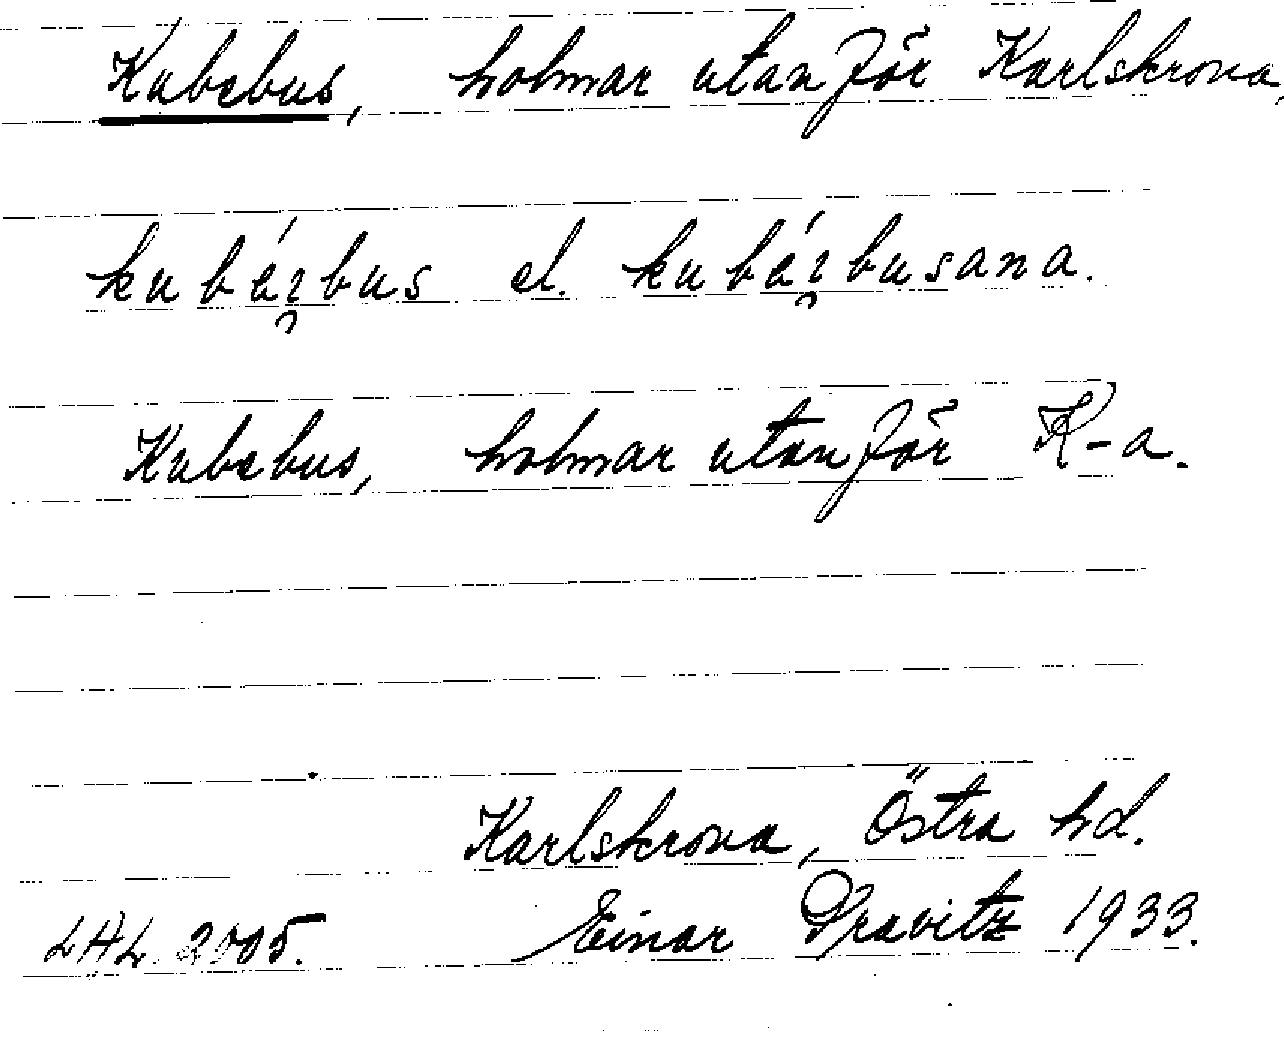 Kubebus, holmar utanför Karlskrona,
kubéꝛbus el. kubéꝛbusana.
Kubebus, holmar utanför K-a.
Karlskrona, Östra hd.
LAL 2005. Einar Pravitz 1933.